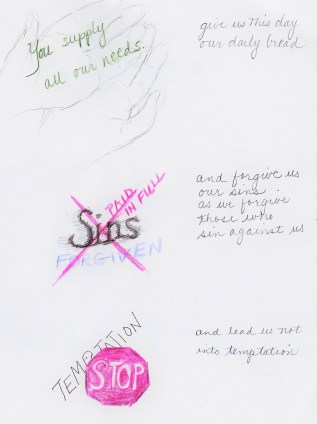 You supply
all our needs.
give us this day
our daily bread
PAID
IN FULL
Sins
FORGIVEN
and forgive us
our sins
as we forgive
those who
sin against us
TEMPTATION
STOP
and lead us not
into temptation